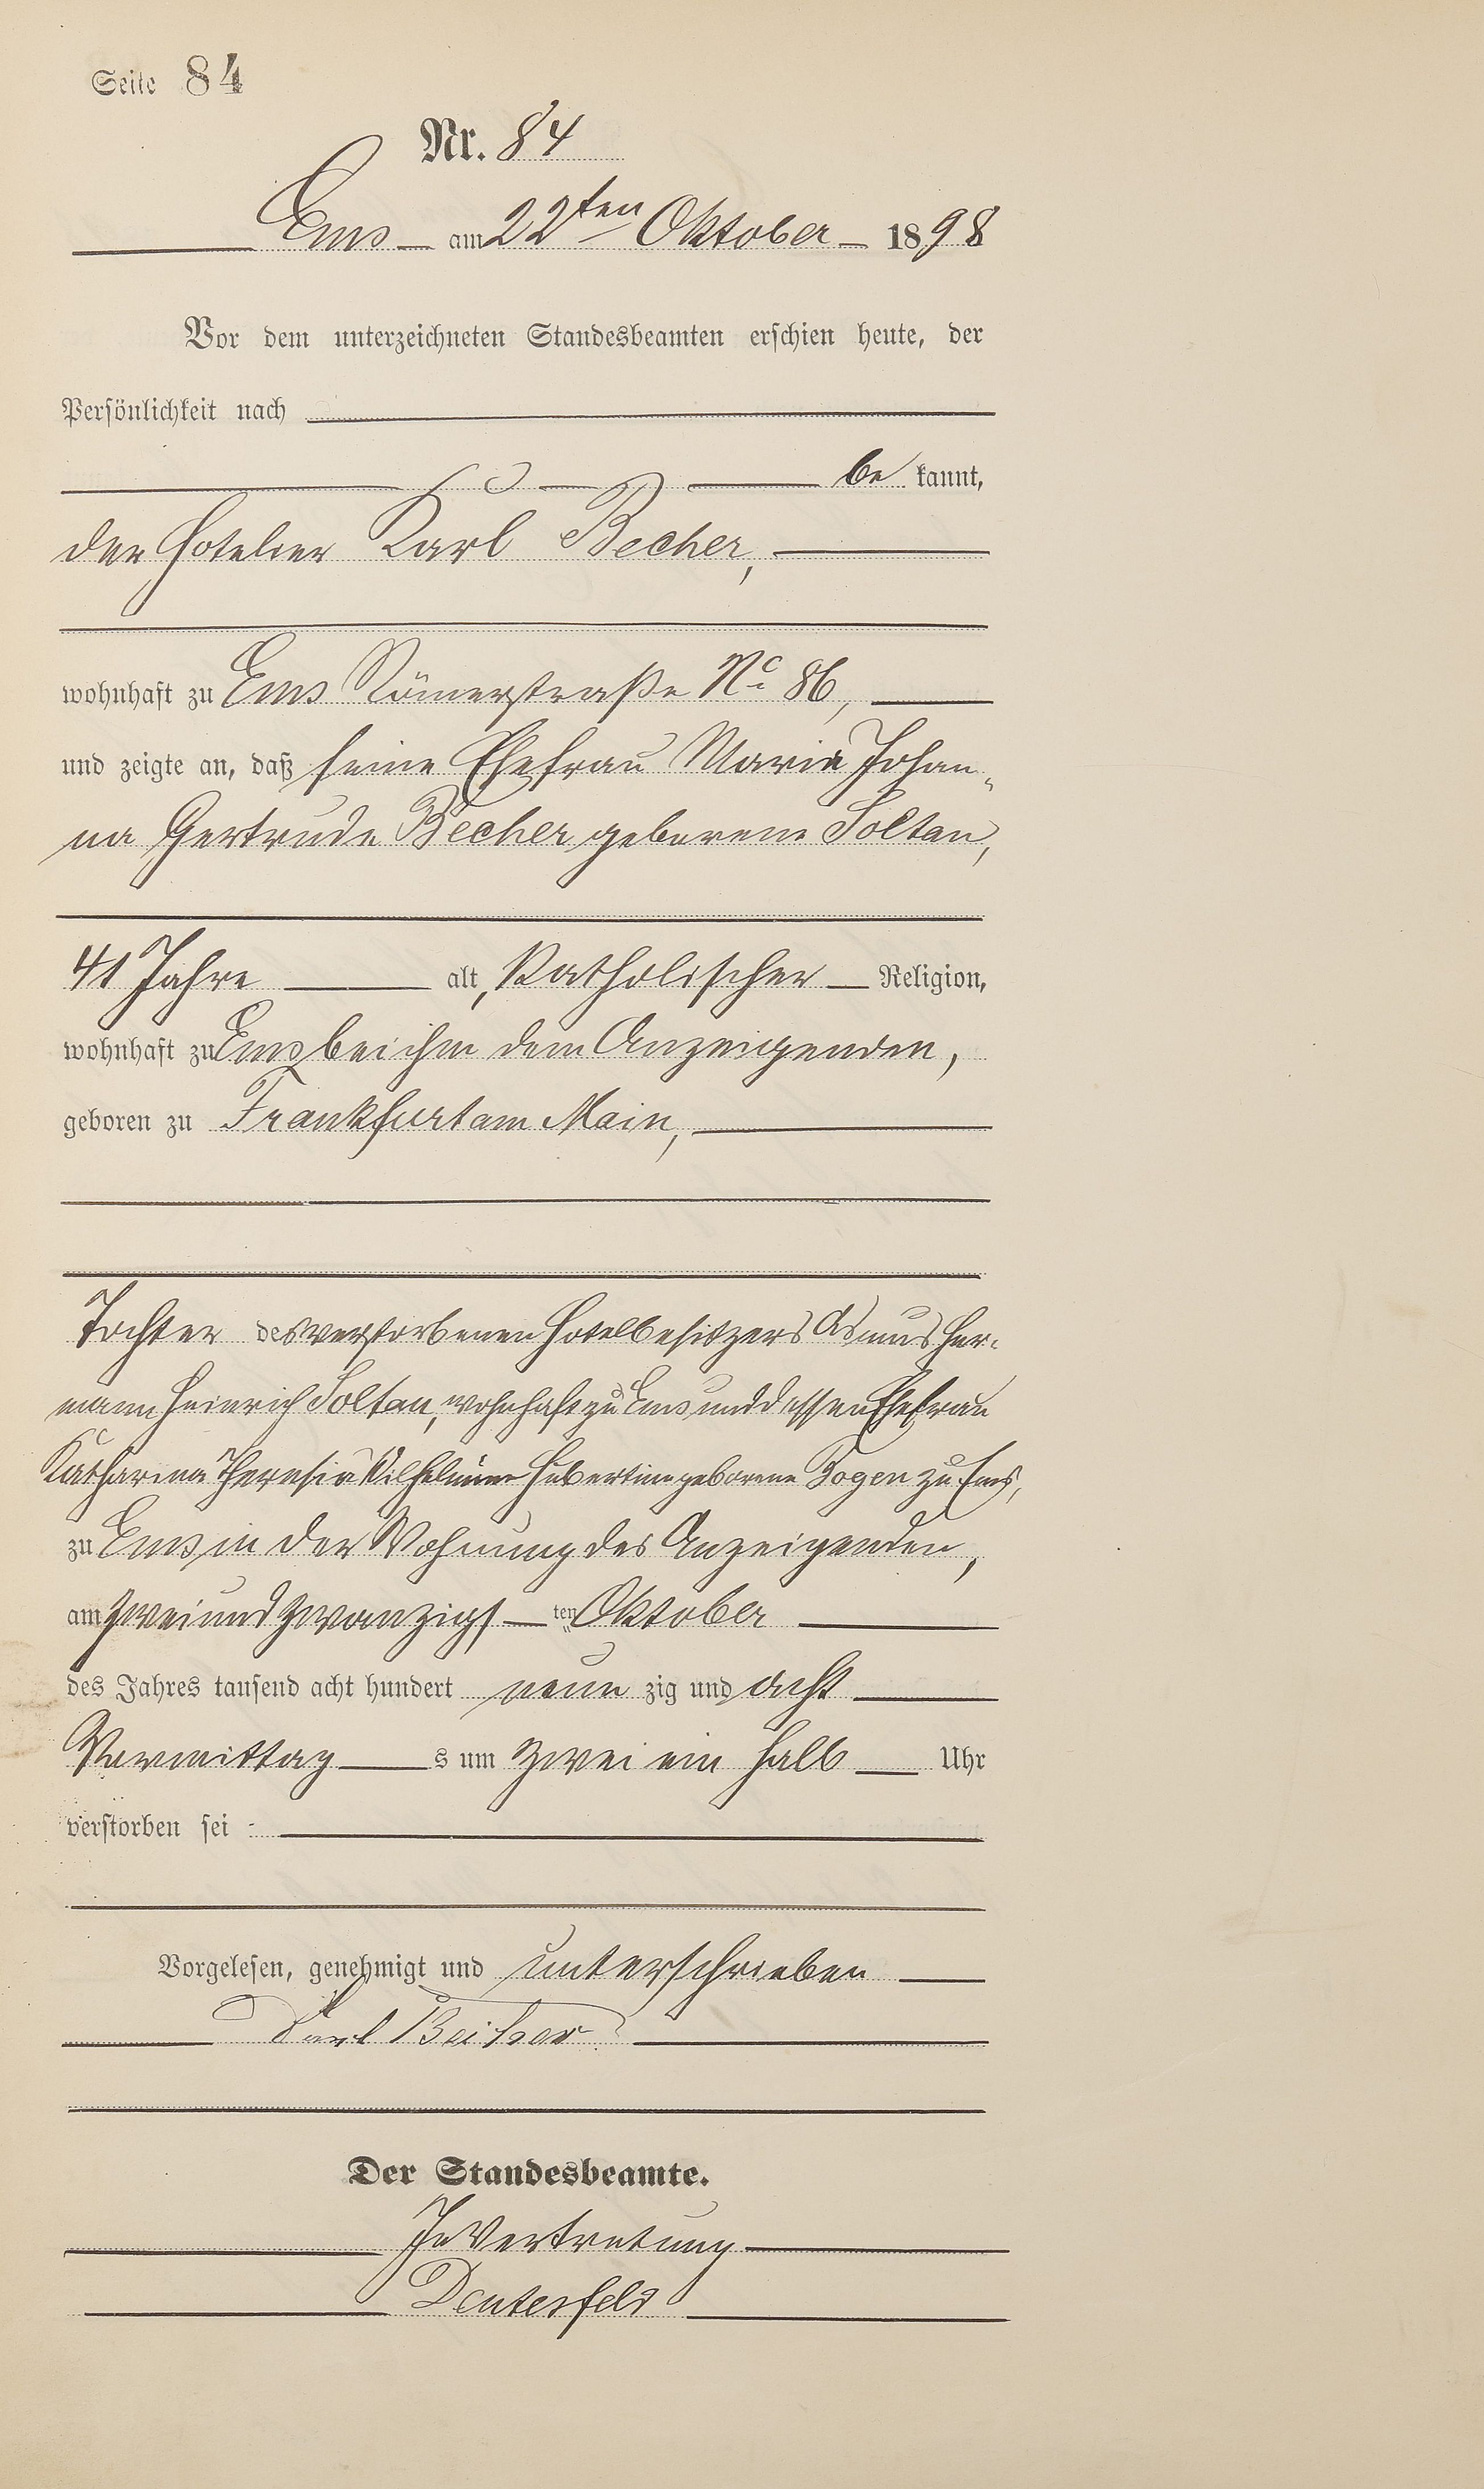 Seite 84
Nr. 84
Ems am 22ten Oktober 1898
Vor dem unterzeichneten Standesbeamten erschien heute, der
Persönlichkeit nach
be kannt,
der Hotelier Karl Becher,
wohnhaft zu Ems Römerstraße No 86,
und zeigte an, daß seine Ehefrau Maria Johan-
na Gertrude Becher geborene Soltau,
41 Jahre alt, katholischer Religion,
wohnhaft zu Ems bei ihm dem Anzeigenden,
geboren zu Frankfurt am Main,
Tochter des verstorbenen Hotelbesitzers Asmus Her-
mann Heinrich Soltau, wohnhaft zu Ems und dessen Ehefrau
Katharina Theresia Wilhelmine Hubertine geborene zu Ems,
zu Ems in der Wohnung des Anzeigenden,
am zwei und zwanzigs ten Oktober
des Jahres tausend acht hundert neun zig und acht
Vormittag s um zwei ein halb Uhr
verstorben sei
Vorgelesen, genehmigt und unterschrieben
Karl Becher
Der Standesbeamte.
In Vertretung